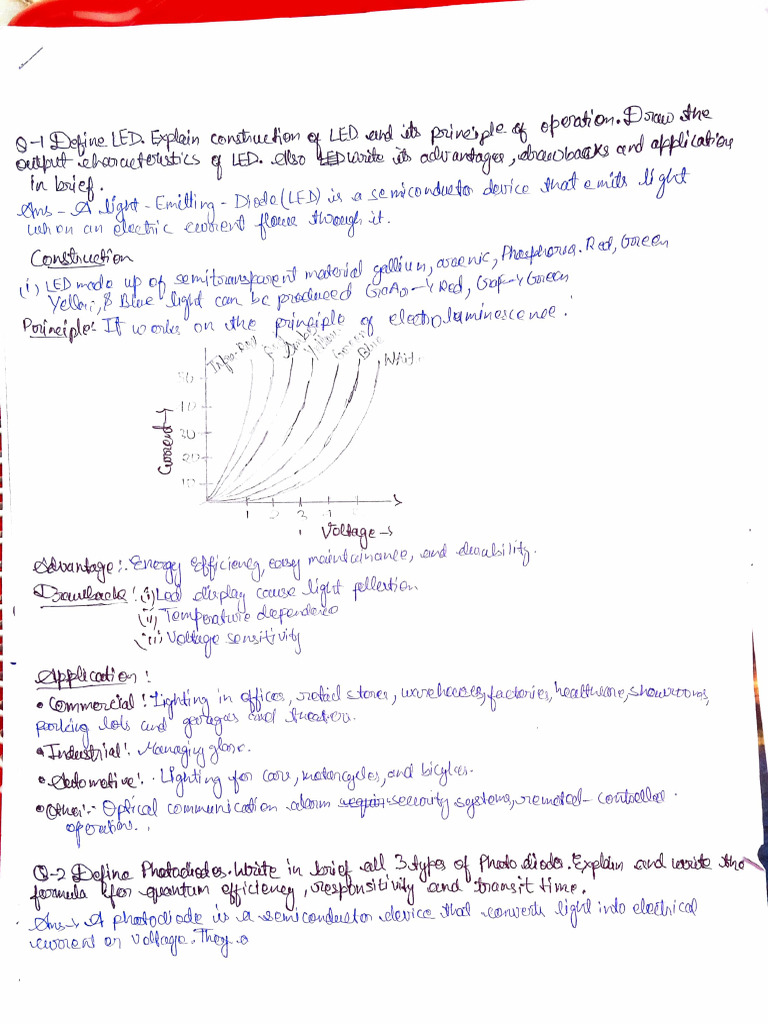 Q-1 Define LED. Explain construction of LED and its principle of operation. Draw the
output characteristics of LED. Also write its advantages, drawbacks and application
in brief.
Ans - A light - Emitting - Diode (LED) is a semiconductor device that emits light
when an electric current flows through it.
Construction
(i) LED made up of semitransparent material gallium, arsenic, Phosphorus. Red, Green
Yellow, & Blue light can be produced Red, Green
Principle: It works on the principle of electroluminescence.
Infra-Red
Yellow
Green
Blue
Whit.
50
10
30
20
10
Current →
1 2 3 4
Voltage →
Advantage: Energy efficiency, easy maintainance, and durability.
Drawback: (i) Led display cause light pollution
(ii) Temperature dependence
(iii) Voltage sensitivity
Application:
• Commercial: Lighting in offices, retail stores, warehouses, factories, healthcare, showrooms,
parking lots and garages and theaters.
• Industrial: Managing glare.
• Automotive: Lighting for cars, motorcycles, and bicycles.
• Other:- Optical communication alarm security systems, remote - controlled
operations.
Q-2 Define Photodiodes. Write in brief all 3 types of Photo diode. Explain and write the
formula for quantum efficiency, responsitivity and transit time.
Ans → A photodiode is a semiconductor device that converts light into electrical
current or voltage. They